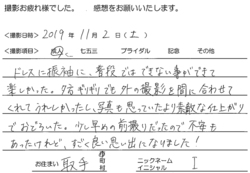 撮影お疲れ様でした。 感想をお願いいたします。
<撮影日時> 2019年 11月 2日(土)
<撮影項目> 成人 七五三 ブライダル 記念 その他
ドレスに振袖に、普段ではできない事ができて
楽しかった。夕方ギリギリでも外の撮影を間に合わせて
くれてうれしかったし、写真も思っていたより素敵な仕上がり
でおどろいた。少し早めの前撮りだったので不安も
あったけれど、すごく良い思い出になりました!
お住まい 取手 市 ニックネーム イニシャル I